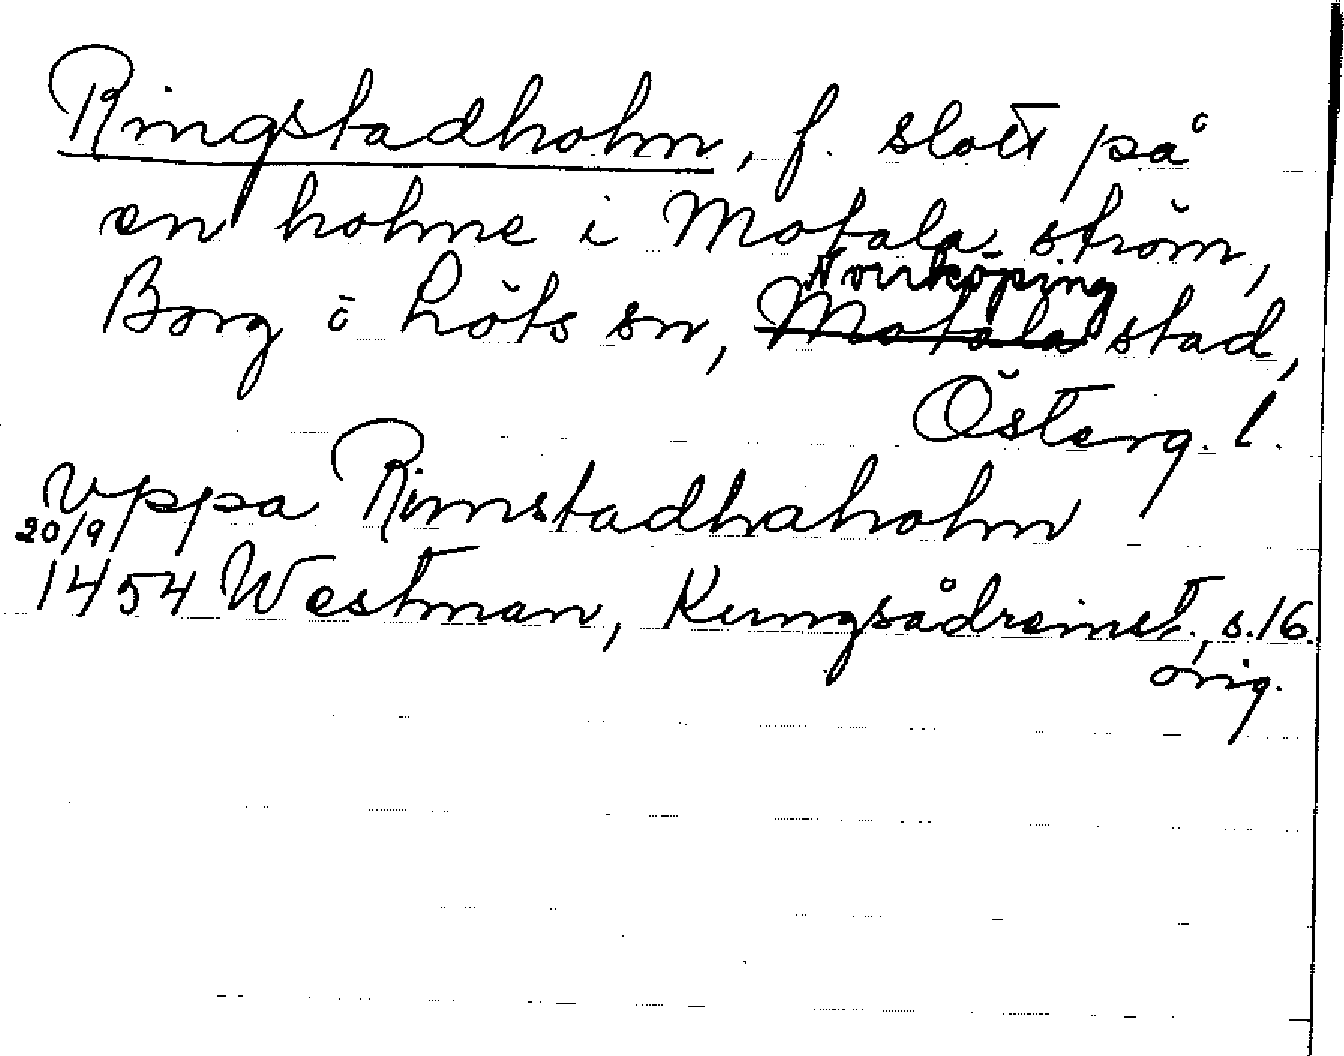 Ringstadholm, f. slott på
en holme i Motala ström,
Borg o Löts sn, Norrköping
Motala stad,
Österg. l.
Vppa Rimstadhaholm
20/9
1454 Westman, Kungsådreinst., s. 16.
orig.